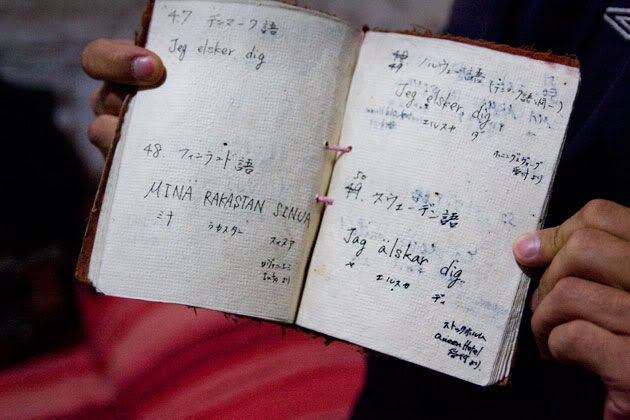 47 デンマーク語
Jeg elsker dig
48. フィンランド語
MINÄ RAKASTAN SINUA
ミナ ラカスタン
49 ノルウェー語 (デンマーク語と同一)
Jeg elsker dig
エルスカ
50
49. スウェーデン語
Jag älskar dig
ヤ エルスカ ディ
ストックホルム
Queen Hotel
受付より